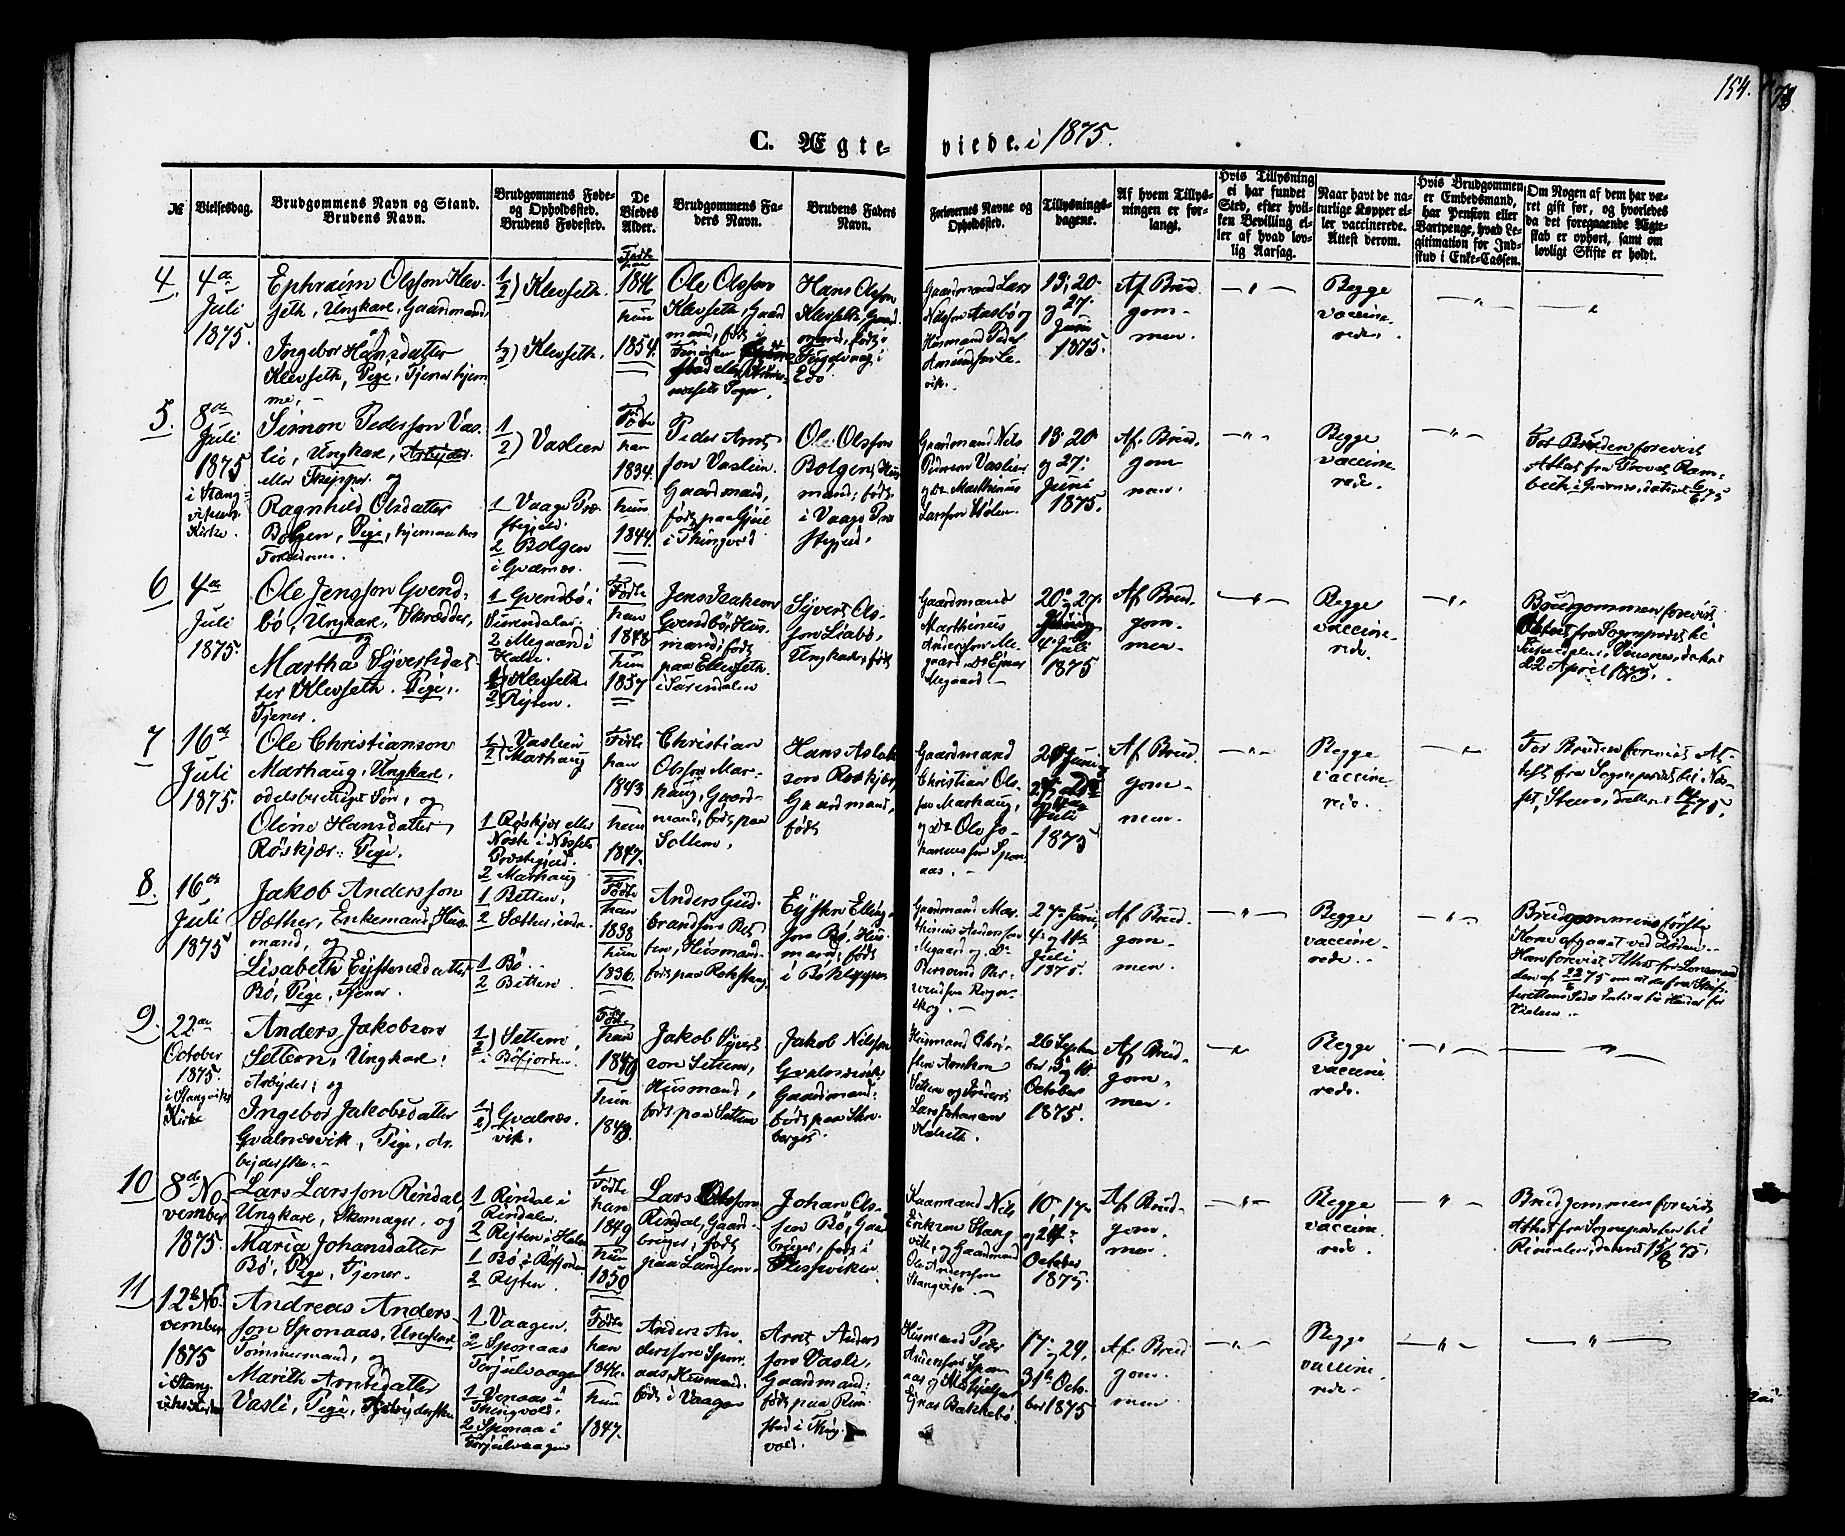 154.
C. Ægteviede i 1875.
№
Vielsesdag.
Brudgommens Navn og Stand.
Brudens Navn.
Brudgommens Føde-
og Opholdssted.
Brudens Fødested.
De
Viedes
Alder.
Brudgommens Fa-
ders Navn.
Brudens Faders
Navn.
Forlovernes Navne og
Opholdssted.
Tillysnings-
dagene.
Af hvem Tillys-
ningen er for-
langt.
Hvis Tillysning
ei har fundet
Sted, efter hvil-
ken Bevilling el-
ler af hvad lov-
lig Aarsag.
Naar havt de na-
turlige Kopper el-
ler vaccinerede.
Attest derom.
Hvis Brudgommen
er Embedsmand,
har Pension eller
Vartpenge, hvad Le-
gitimation for Ind-
skud i Enke-Cassen.
Om Nogen af dem har væ-
ret gift før, og hvorledes
da det foregaaende Ægte-
skab er ophørt, samt om
lovligt Skifte er holdt.
4.
4de
Juli
1875.
Ephraim Olsson Klev-
seth, Ungkarl, Gaardmand
og
Ingebor Hansdatter
Klevseth, Pige, Tjener hjem-
me.
1/2) Klevseth.
1/2) Klevseth.
Fødte
han
1846
hun
1854.
Ole Olsson
Klevseth, Gaard-
mand, født i
Hans Olsson
Klevseth, Gaard-
mand, født i
Edø.
Gaardmand Lars
Nilsson Aasbø og
Husmand Peder
13, 20
og 27
Juni
1875.
Af Brud-
gom-
men.
-"-
Begge
vaccine-
rede.
-"-
"
5.
8de
Juli
1875
i Stang-
vigens
Kirke.
Simon Pedersson Vas-
lie, Ungkarl, Arbejder
eller Skipper og
Ragnhild Olsdatter
Bolgen, Pige, hjemme hos
Forældrene.
1
2) Vaslien
1 Vaage Præ-
stegjeld.
2 Bolgen
i Qværnæs.
Fødte
han
1834.
hun
1844.
Peder Arnt-
son Vaslien,
Gaardmand,
født paa
i Thingvold
Ole Olsson
Bolgen, Hus-
mand, født
i Vaage Præ-
stegjeld.
Gaardmand Nils
Vaslien
og Do Marthinus
Larsson Hølen.
13, 20
og 27
Juni
1875.
Af Brud-
gom-
men.
-"-
Begge
vaccine-
rede.
-"-
For Bruden forevist
Attest fra Provst Ram-
bech i Qværnes, dateret 6/6 75
6
4de
Juli
1875
Ole Jensson Qvend-
bø, Ungkarl, Skrædder,
og
Martha Syvertsdat-
ter Klevseth. Pige,
Tjener.
1 Qvendbø i
Surendalen
2 Megaard i
Halse.
1 Klevseth
2 Rejten.
Fødte
han
1848
hun
1857
Jens Isakson
Qvendbø, Hus-
mand, født
paa Ellevseth
i Surendalen
Syvert Ols-
son Liabø,
Ungkarl, født
Gaardmand
Marthinus
Andersson Me-
gaard, Do Ejnar
Megaard.
20 og 27
Juni og
4 Juli
1875
Af Brud-
gom-
men.
-"-
Begge
vaccine-
rede.
-"-
Brudgommen forevist
Attest fra Sognepræst til
Surendalen, dateret
22 April 1875.
7
16de
Juli
1875.
Ole Christianson
Marhaug, Ungkarl,
odelsberettiget Søn, og
Oline Hansdatter
Røskjær. Pige.
1) Vaslien
2) Marhaug
1 Røskjær eller
Noste i Næssets
Præstegjeld.
2 Marhaug
Fødte
han
1843
hun
1847.
Christian
Olsson Mar-
haug, Gaard-
mand, født paa
Soltem.
Hans Aslak-
son Røskjær,
Gaardmand,
født
Gaardmand
Christian Ols-
son Marhaug,
og Do Ole Jo-
hannesson Spon-
aas.
20 Juni,
Juli
1875
Af Brud-
gom-
men.
-"-
Begge
vaccine-
rede.
-"-
For Bruden forevist At-
test fra Sognepræst til Næs-
set, dateret
8.
16de
Juli
1875
Jakob Andersson
Sæther, Enkemand, Hus-
mand, og
Lisabeth Eystensdatter
Bø, Pige, Tjener.
1 Betten,
2 Sæther, indre
1 Bø.
2 Betten
Fødte
han
1838
hun
1836.
Anders Gud-
brandson Bet-
ten, Husmand,
født paa Rokstang
Eysten Elling-
son Bø, Hus-
mand, født
i Bøkleppen
Gaardmand Mar-
thinus Andersson
Megaard og Do
27 Juni,
4 og 11te
Juli
1875.
Af Brud-
gom-
men.
-"-
Begge
vaccine-
rede.
-"-
Brudgommens første
Kone afgaaet ved Døden.
Han forevist Attest fra Lensmand-
den af 22/6 75 om at der fra Skif-
terettens Side Intet er til Hinder for
Vielsen.
9.
22de
October
1875.
i Stangviks
Kirke
Anders Jakobsson
Settem, Ungkarl,
Arbejder, og
Ingebor Jakobsdatter
Qvalnæsvik, Pige, Ar-
bejderske.
1/2) Settem,
i Bøfjorden
1/2) Qvalnæs-
vik.
Født.
han
1849
hun
1849.
Jakob Syvert-
son Settem,
Husmand,
født paa Settem
Jakob Nilsson
Qvalnæsvik
Gaardmand,
født paa Skry-
berget.
Husmand Chri-
sten Arntson
Settem og
Lars Johanson
26 Septem-
ber, 3 og 10
October
1875.
Af Brud-
gom-
men.
-"-
Begge
vaccine-
rede.
-"-
"
10
8de No-
vember
1875
Lars Larsson Rindal,
Ungkarl, Skomager, og
Maria Johansdatter
Bø, Pige, Tjener.
1 Rindal i
Rindalen
2 Rejten i Halse
1 Bø i Bøfjorden
2 Rejten.
Fødte
han
1849
hun
1850
Lars Olsson
Rindal, Gaard-
bruger, født
paa Landsem.
Johan Ols-
son Bø, Gaard-
bruger, født i
Plessviken
Kaarmand Nils
Eriksen Stang-
vik, og Gaardmand
Ole Andersson
Stangvik.
10, 17
og 24
October
1875.
Af Brud-
gom-
men.
-"-
Begge
vaccine-
rede.
-"-
Brudgommen forevist
Attest fra Sognepræsten til
Rindalen, dateret 15/8 75.
11
12te No-
vember
1875
i Stang-
viks Kirke
Andreas Anders-
son Sponaas, Ungkarl
Tømmermand, og
Marith Arntsdatter
Vasli, Pige, Arbejderske
1 Vaagen.
2 Sponaas
Torjulvaagen
1 Venaas i
Thingvold.
2 Sponaas i
Torjulvaagen
Fødte
han
1846.
hun
1847.
Anders An-
dersson Spon-
aas, Husmand,
født i Vaagen
Arnt Anders-
son Vasli,
Gaardmand,
født paa Rim-
stad i Thing-
vold.
Husmand Peder
Andersson Spon-
aas og
Bakkebø.
17, 24,
31te Octo-
ber 1875
Af Brud-
gom-
men.
-"-
Begge
vaccine-
rede.
-"-
"